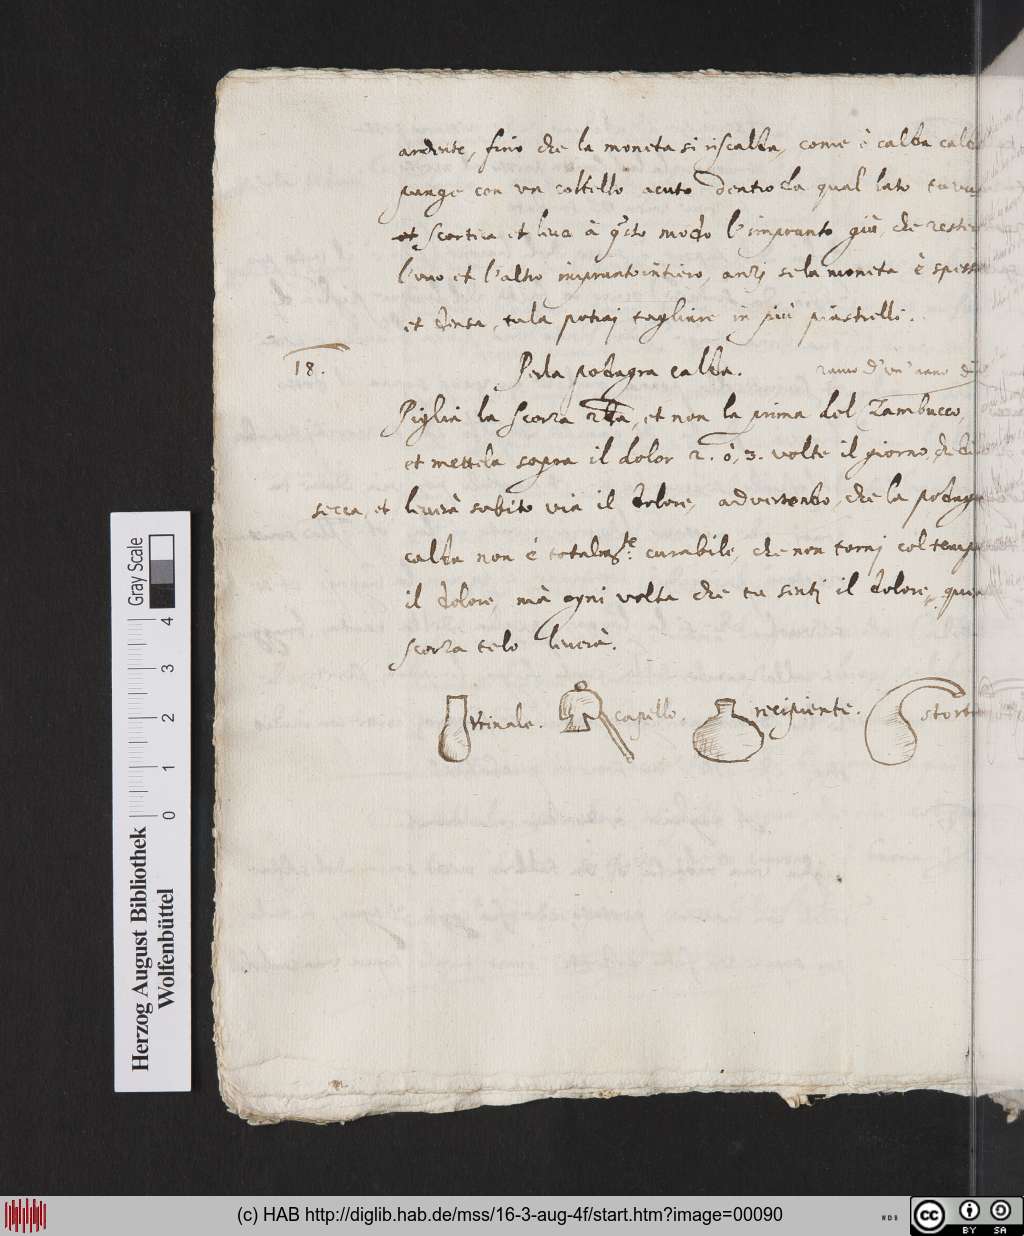 ardente, fino che la moneta si riscalda, come è calda
pange con un coltello acuto dentro da qual lato
et scortica et leva à q̃sto modo l'impronto giù, che
l'uno et l'altro impronto intiero, anzj se la moneta è
et densa, tu la potraj tagliare in più piastrelli.
18.
Per la podagra calda.
Piglia la scorza 2da, et non la prima del Zambucco,
et mettela sopra il dolor 2. ò, 3. volte il giorno,
secca, et leverà subito via il dolore, advertendo, che la
calda non è totalmte. curabile, che non tornj col
il dolore, mà ogni volta che tu sentj il dolore,
scorza telo leverà.
Urinale.
capello.
recipiente.
Gray Scale
4 3 2 1 0
Herzog August Bibliothek
Wolfenbüttel
(c) HAB http://diglib.hab.de/mss/16-3-aug-4f/start.htm?image=00090
WDB
cc BY SA